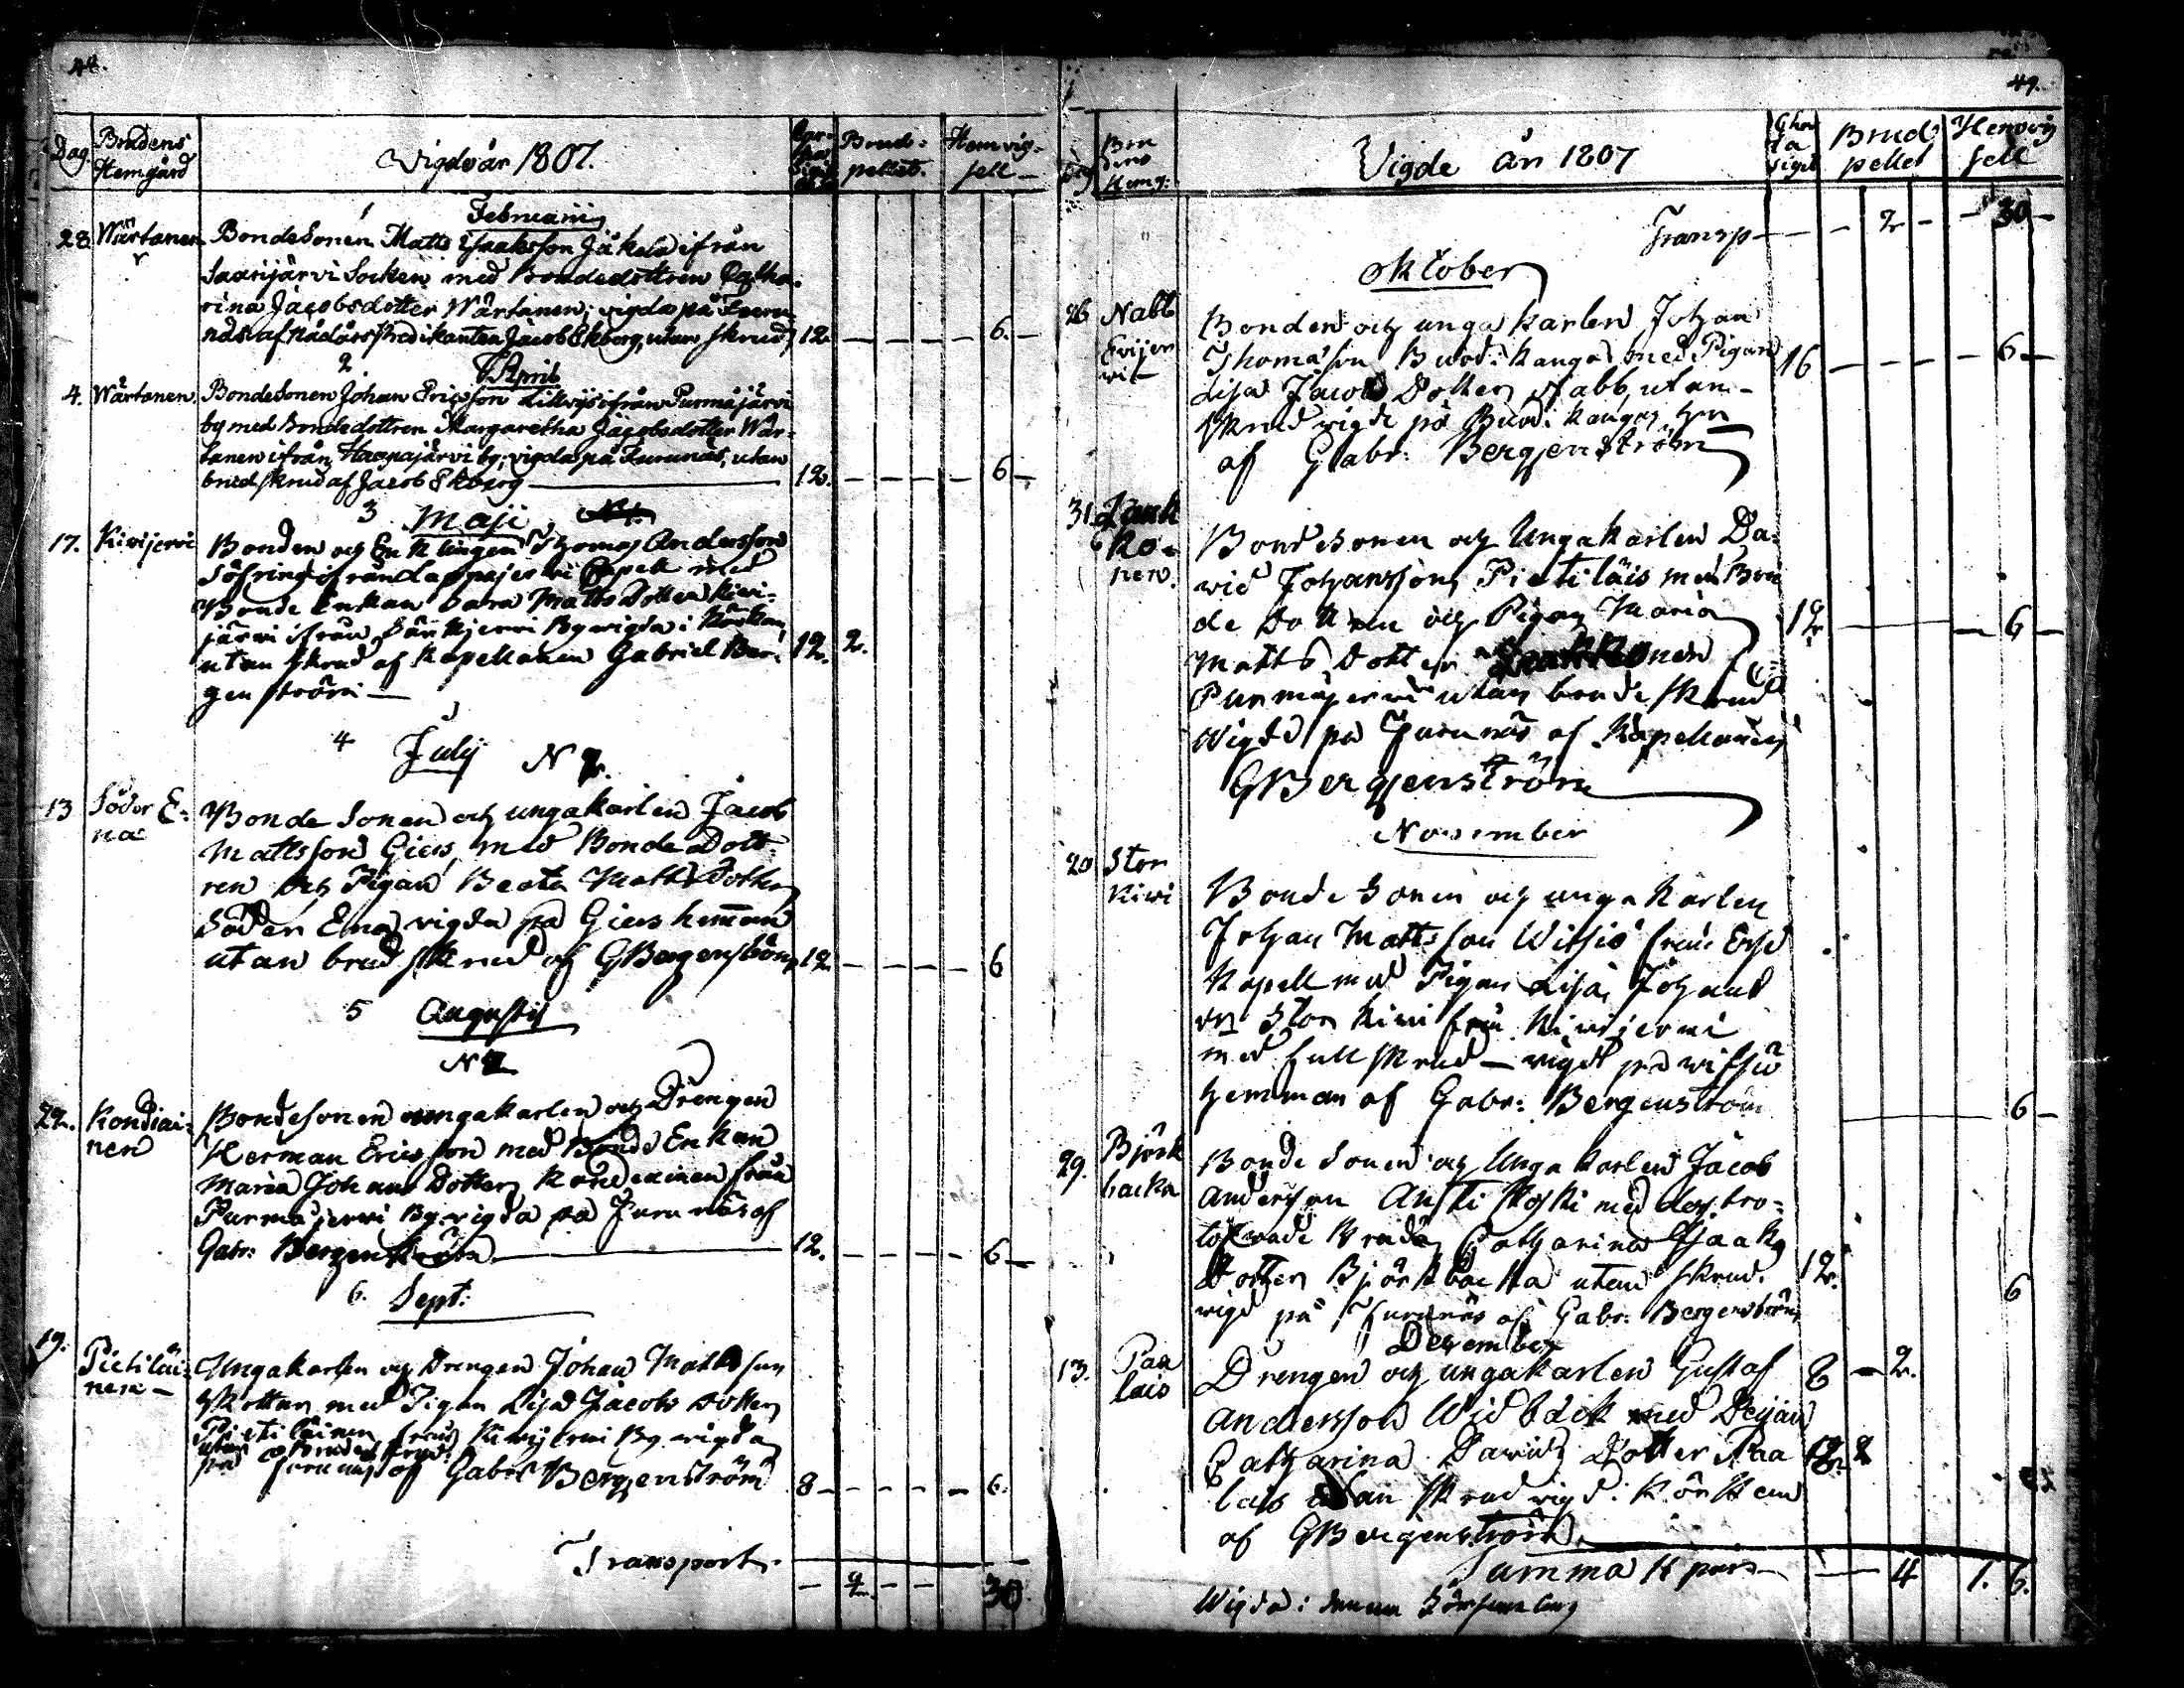 48.
Dag. Brudens Hemgård
Vigdvår 1807.
Brudpellet. Hemvigsell
1 Februarii
28 Wärtanen BondeSonen Matts Isaaksson Jäkelä ifrån
Saarijärvi Socken med Bondedottren Catha-
rina Jacobsdotter Wärtanen; vigda på Furu
näs af nådårs Predikanten Jacob Ekberg, utan skrud, 12 6.
2 April
4. Wärtanen BondeSonen Johan Ericsson ifrån Purmåjärvi
by med Bondedottren Margaretha Jacobsdotter Wär-
tanen ifrån Haapajärvi by; vigda på Furunäs, utan
brudskrud af Jacob Ekberg 12. 6
3 Maji
17. Kivijervi Bonden och Enklingen Thomas Andersson
ifrån Lappajervi Capell med
Bonde Enkan Sara Matts Dotter Kivi-
järvi ifrån By vigda i Körkan
utan skrud af Kapellanen Gabriel Ber- 12. 2.
genström
4 July
N 2.
13 Söder E-
na
Bonde Sonen och ungakarlen Jacob
Mattsson Giers med Bonde Dott-
ren och Pigan Beata Matts Dotter
Söder Ena vigda på Giers hemman
utan brudskrud af GBergenström 12 6
5 Augusti
22. Kondiai-
nen
Bondesonen ungakarlen och Drengen
Herman Ericsson med Bonde Enkan
Maria Johans Dotter Kondiainen från
Purmåjervi By vigda på Furunäs af
Gabr: Bergenström 12. 6
6. Sept:
19. Pietiläi-
nen
Ungakarlen och Drengen Johan Mattsson
med Pigan Lisa Jacobs Dotter
Pietiläinen från Kivijervi By vigda
utan Brudeskrud:
på Furunäs af Gabr: Bergenström 8 6.
Transport. 2. 30.
49.
Brudens Hemg:
Vigde år 1807
Brudpellet Hemvigsell
Transp 2 30
Oktober
26 Nabb
Bonden och unga karlen Johan
Thomasson med Pigan 16 6
Lisa Jacobs Dotter Nabb, utan
skrud vigde på
af Gabr: Bergenström
31. Lank
ko-
nen.
Bondesonen och Ungakarlen Da-
vid Johansson Pietiläis med Bon
de Dottren och Pigan Maria 12 6
Matts Dotter Lankkonen
Purmåjervi utan brudeskrud
Wigde på Furunäs af Kapellanen
GBergenström
November
20 Stor
Kiwi
Bonde Sonen och unga karlen
Johan Mattsson Witsiö från
Kapell med Pigan Lisa Johans
Dr Stor Kiwi från Kivijervi
med full skrud vigde på Witsiö
hemman af Gabr: Bergenström 6
29. Björk
backa
Bonde Sonen och Unga karlen Jacob
Andersson med des tro-
lofvade Bruda Catharina Isaaks
Dotter Björkbacka utan skrud. 12. 6
vigd på Furunäs af Gabr: Bergenström
December
13. Paa
lais
Drengen och ungakarlen Gustaf 2.
Andersson Widbäck med Deijan
Catharina Davids Dotter Paa
lais utan skrud vigd i Körkan
af GBergenström
Summa 11 par 4 1. 6.
Wigda i denna Församling